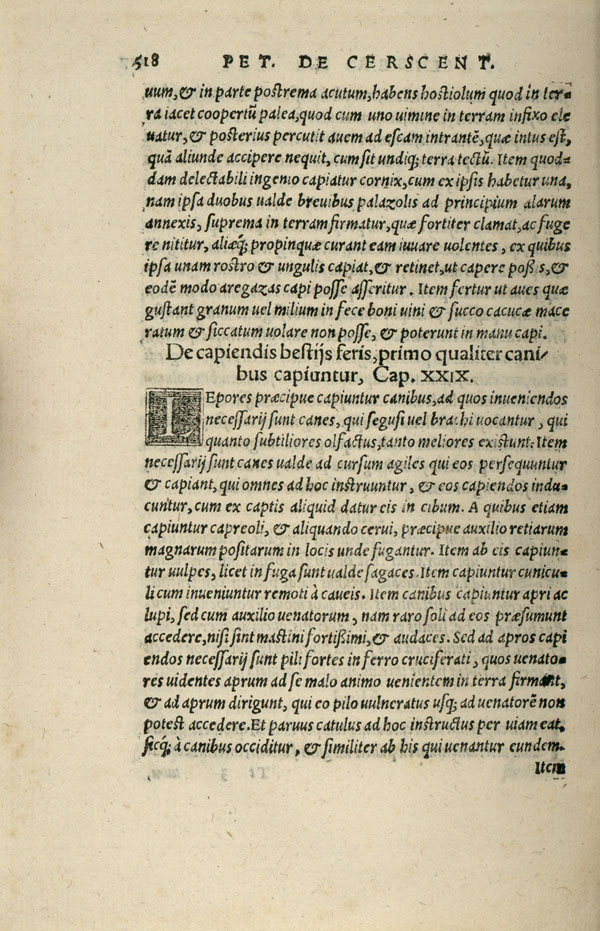 518 PET. DE CERSCENT.
uum, & in parte postrema acutum, habens hostiolum quod in ter-
ra iacet coopertũ palea, quod cum uno uimine in terram infixo ele
uatur, & posterius percutit auem ad escam intrantẽ, quæ intus est,
quã aliunde accipere nequit, cum sit undiq; terra tectũ. Item quod-
dam delectabili ingenio capiatur cornix, cum ex ipsis habetur una,
nam ipsa duobus ualde breuibus palazolis ad principium alarum
annexis, suprema in terram firmatur, quæ fortiter clamat, ac fuge
re nititur, aliæq; propinquæ curant eam iuuare uolentes, ex quibus
ipsa unam rostro & ungulis capiat, & retinet, ut capere poß s, &
eodẽ modo aregazas capi posse asseritur. Item fertur ut aues quæ
gustant granum uel milium in fece boni uini & succo cacucæ mace
ratum & siccatum uolare non posse, & poterunt in manu capi.
De capiendis bestijs feris, primo qualiter cani-
bus capiuntur, Cap. XXIX.
LEpores præcipue capiuntur canibus, ad quos inueniendos
necessarij sunt canes, qui segusi uel brachi uocantur, qui
quanto subtiliores olfactus, tanto meliores existunt: Item
necessarij sunt canes ualde ad cursum agiles qui eos persequuntur
& capiant, qui omnes ad hoc instruuntur, & eos capiendos indu-
cuntur, cum ex captis aliquid datur eis in cibum. A quibus etiam
capiuntur capreoli, & aliquando cerui, præcipue auxilio retiarum
magnarum positarum in locis unde fugantur. Item ab eis capiun-
tur uulpes, licet in fuga sunt ualde sagaces. Item capiuntur cunicu-
li cum inueniuntur remoti à caueis. Item canibus capiuntur apri ac
lupi, sed cum auxilio uenatorum, nam raro soli ad eos præsumunt
accedere, nisi sint mastini fortißimi, & audaces. Sed ad apros capi
endos necessarij sunt pili fortes in ferro cruciferati, quos uenato-
res uidentes aprum ad se malo animo uenientem in terra firmant,
& ad aprum dirigunt, qui eo pilo uulneratus usq; ad uenatorẽ non
potest accedere. Et paruus catulus ad hoc instructus per uiam eat,
sicq; à canibus occiditur, & similiter ab his qui uenantur eundem.
Item